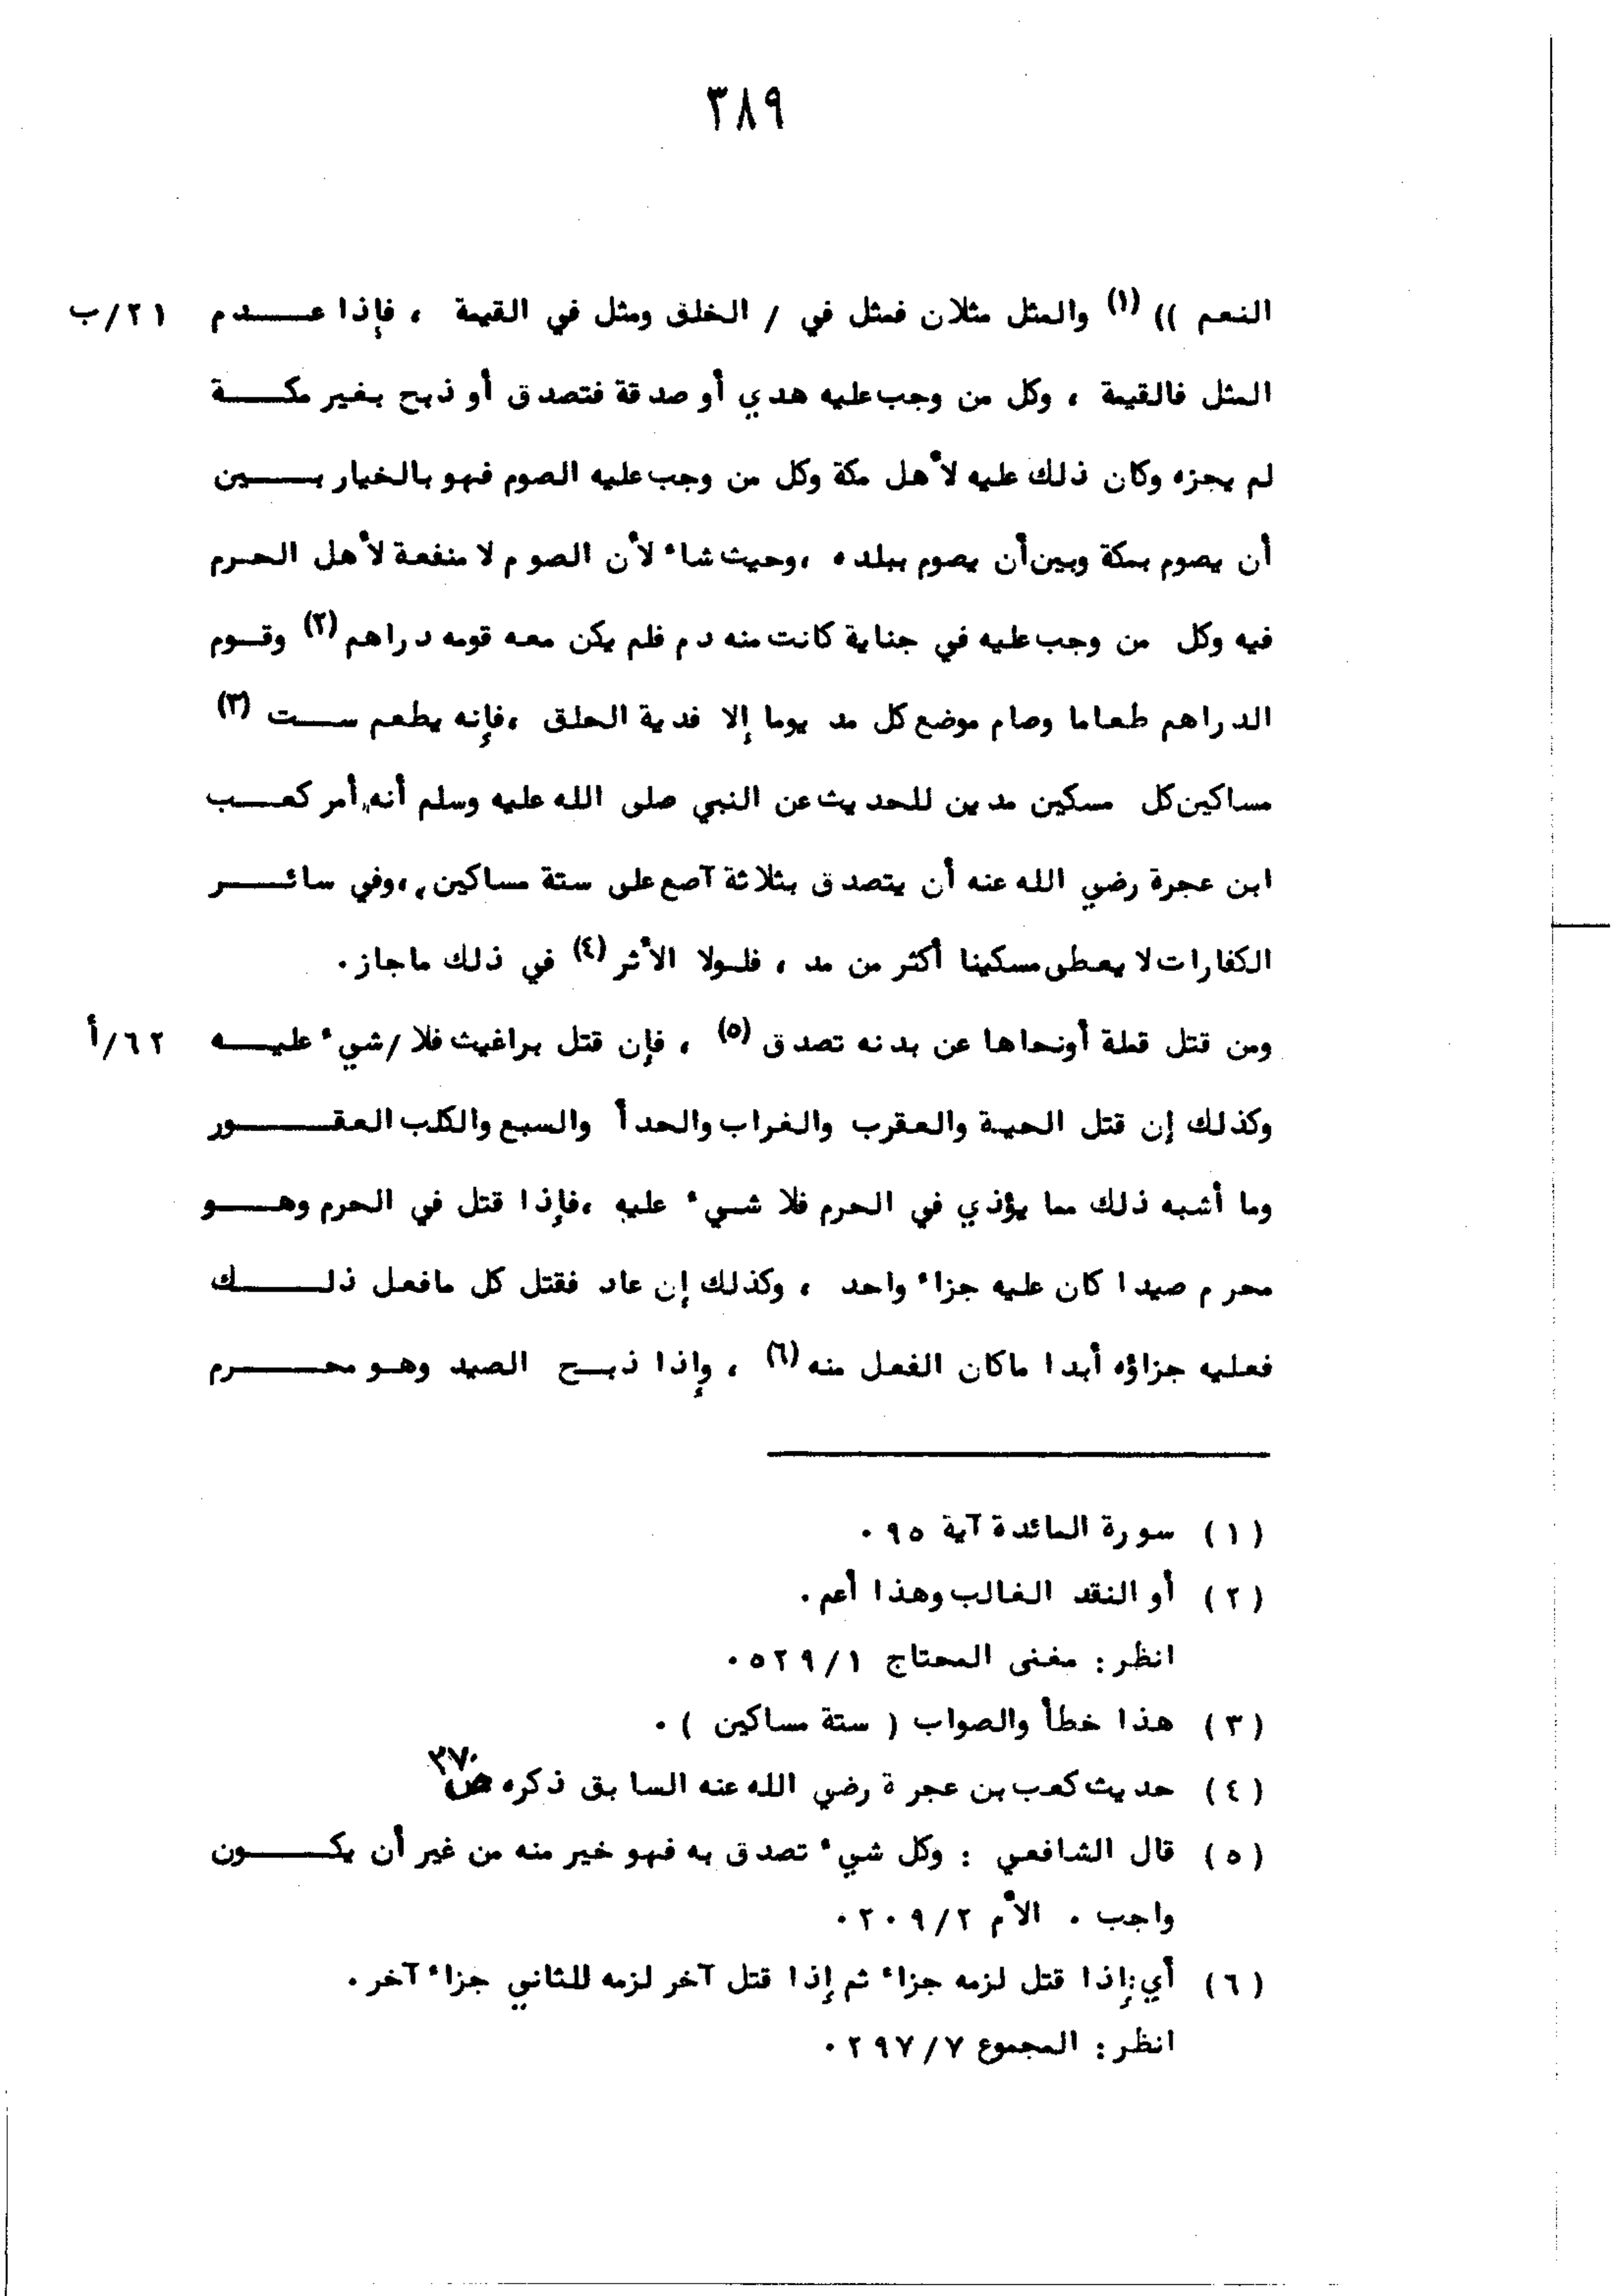 ٣٨٩
النعم )) (١) والمثل مثلان فمثل في / الخلق ومثل في القيمة ، فإذا عدم ٢١/ب
المثل فالقيمة ، وكل من وجب عليه هدي أو صدقة فتصدق أو ذبح بغير مكة
لم يجزه وكان ذلك عليه لأهل مكة وكل من وجب عليه الصوم فهو بالخيار بين
أن يصوم بمكة وبين أن يصوم ببلده ،وحيث شاء لأن الصوم لا منفعة لأهل الحرم
فيه وكل من وجب عليه في جناية كانت منه دم فلم يكن معه قومه دراهم (٢) وقوم
الدراهم طعاما وصام موضع كل مد يوما إلا فدية الحلق ،فإنه يطعم ست (٣)
مساكين كل مسكين مدين للحديث عن النبي صلى الله عليه وسلم أنه "أمر كعب
ابن عجرة رضي الله عنه أن يتصدق بثلاثة آصع على ستة مساكين" ،وفي سائر
الكفارات لا يعطى مسكينا أكثر من مد ، فلولا الأثر (٤) في ذلك ماجاز .
ومن قتل قملة أونحاها عن بدنه تصدق (٥) ، فإن قتل براغيث فلا /شيء عليه ٦٢/أ
وكذلك إن قتل الحية والعقرب والغراب والحدأ والسبع والكلب العقور
وما أشبه ذلك مما يؤذي في الحرم فلا شيء عليه ،فإذا قتل في الحرم وهو
محرم صيدا كان عليه جزاء واحد ، وكذلك إن عاد فقتل كل مافعل ذلك
فعليه جزاؤه أبدا ماكان الفعل منه (٦) ، وإذا ذبح الصيد وهو محرم
(١) سورة المائدة آية ٩٥ .
(٢) أو النقد الغالب وهذا أعم .
انظر : مغنى المحتاج ٥٢٩/١ .
(٣) هذا خطأ والصواب ( ستة مساكين ) .
(٤) حديث كعب بن عجرة رضي الله عنه السابق ذكره ص ٣٧٠
(٥) قال الشافعي : وكل شيء تصدق به فهو خير منه من غير أن يكون
واجب . الأم ٢٠٩/٢ .
(٦) أي :إذا قتل لزمه جزاء ثم إذا قتل آخر لزمه للثاني جزاء آخر .
انظر : المجموع ٢٩٧/٧ .